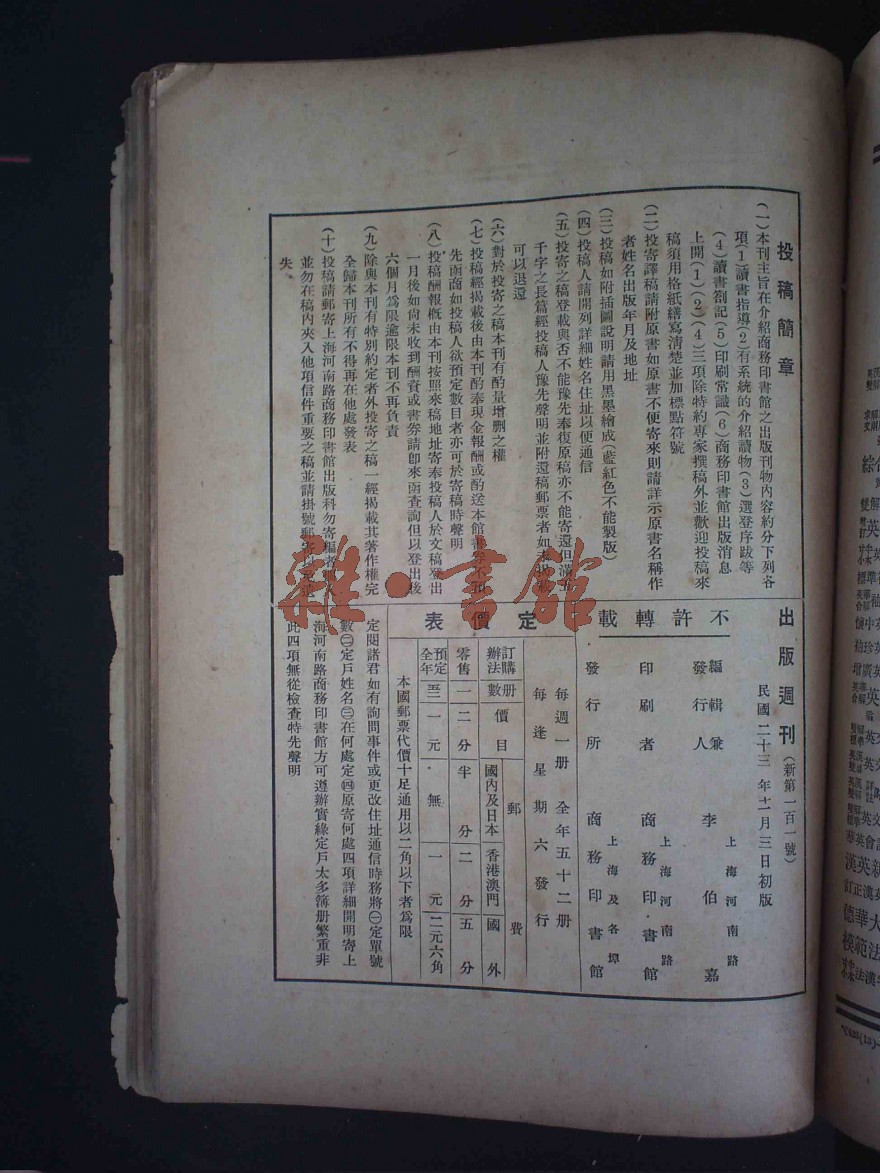 投稿簡章
(一)本刊主旨在介紹商務印書館之出版刊物內容約分下列各
項(1)讀書指導(2)有系統的介紹讀物(3)選登序跋等
(4)讀書劄記(5)印刷常識(6)商務印書館出版消息
上開(1)(2)(4)三項除特約專家撰稿外並歡迎投稿來
稿須用格紙繕寫清楚並加標點符號
(二)投寄譯稿請附原書如原書不便寄來則請詳示原書名稱作
者姓名出版年月及地址
(三)投稿如附插圖說明請用黑墨繪成(藍紅色不能製版)
(四)投稿人請開列詳細姓名住址以便通信
(五)投寄之稿登載與否不能豫先奉復原稿亦不能寄還但滿五
千字之長篇經投稿人豫先聲明並附還稿郵票者如未揭載
可以退還
(六)對於投寄之稿本刊有酌量增删之權
(七)投稿經揭載後由本刊酌奉現金報酬或酌送本館書券不預
先函商如投稿人欲預定數目者亦可於寄稿時聲明
(八)投稿酬報概由本刊按照來稿地址寄奉投稿人於文稿登出
一月後如尙未收到酬資或書券請卽來函查詢但以登出後
六個月爲限逾限本刊不再負責
(九)除與本刊有特別約定者外投寄之稿一經揭載其著作權完
全歸本刊所有不得再在他處發表
(十)投稿請郵寄上海河南路商務印書館出版科勿寄編者
並勿在稿內夾入他項信件重要之稿並請掛號郵寄以免遺
失
出版週刊(新第一百一號)
民國二十三年十一月三日初版
不許轉載
編輯兼發行人 李伯嘉
上海河南路
印刷者 商務印書館
上海河南路
發行所 商務印書館
上海及各埠
定價表
每週一册 全年五十二册
每逢星期六發行
訂購辦法 册數 價目 郵費
國內及日本 香港澳門 國外
零售 一 二分 半分 二分 五分
預定全年 五二 一元 無 一元 二元六角
本國郵票代價十足通用以二角以下者爲限
定閱諸君如有詢問事件或更改住址通信時務將㊀定單號
數㊁定戶姓名㊂在何處定㊃原寄何處四項詳細開明寄上
海河南路商務印書館方可遵辦實緣定戶太多簿册繁重非
此四項無從檢查特先聲明
雜·書館